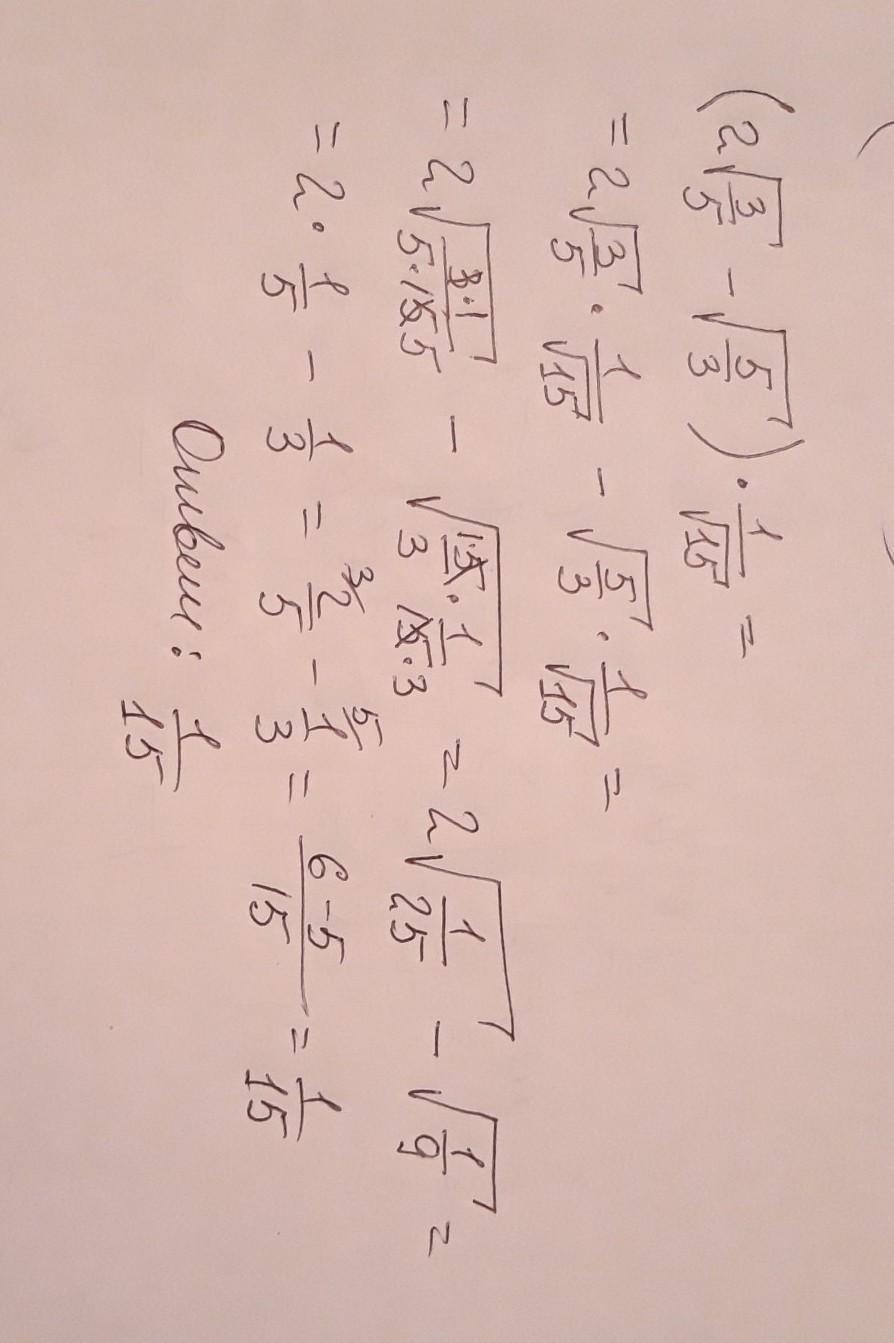 (2√(3/5) - √(5/3)) · 1/√15 =
= 2√(3/5) · 1/√15 - √(5/3) · 1/√15 =
= 2√(3·1/5·15 5) - √(1 5·1/3 15·3) = 2√(1/25) - √(1/9) =
= 2 · 1/5 - 1/3 = 3/ 2/5 - 5/ 1/3 = 6-5/15 = 1/15
Ответ: 1/15